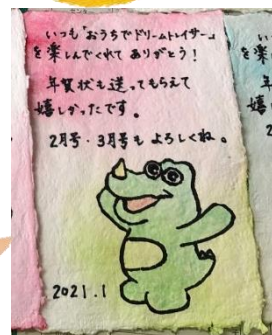 いつも「おうちでドリームトレイサー」
を楽しんでくれて ありがとう！
年賀状も送ってもらえて
嬉しかったです。
2月号・3月号も よろしくね。
2021.1